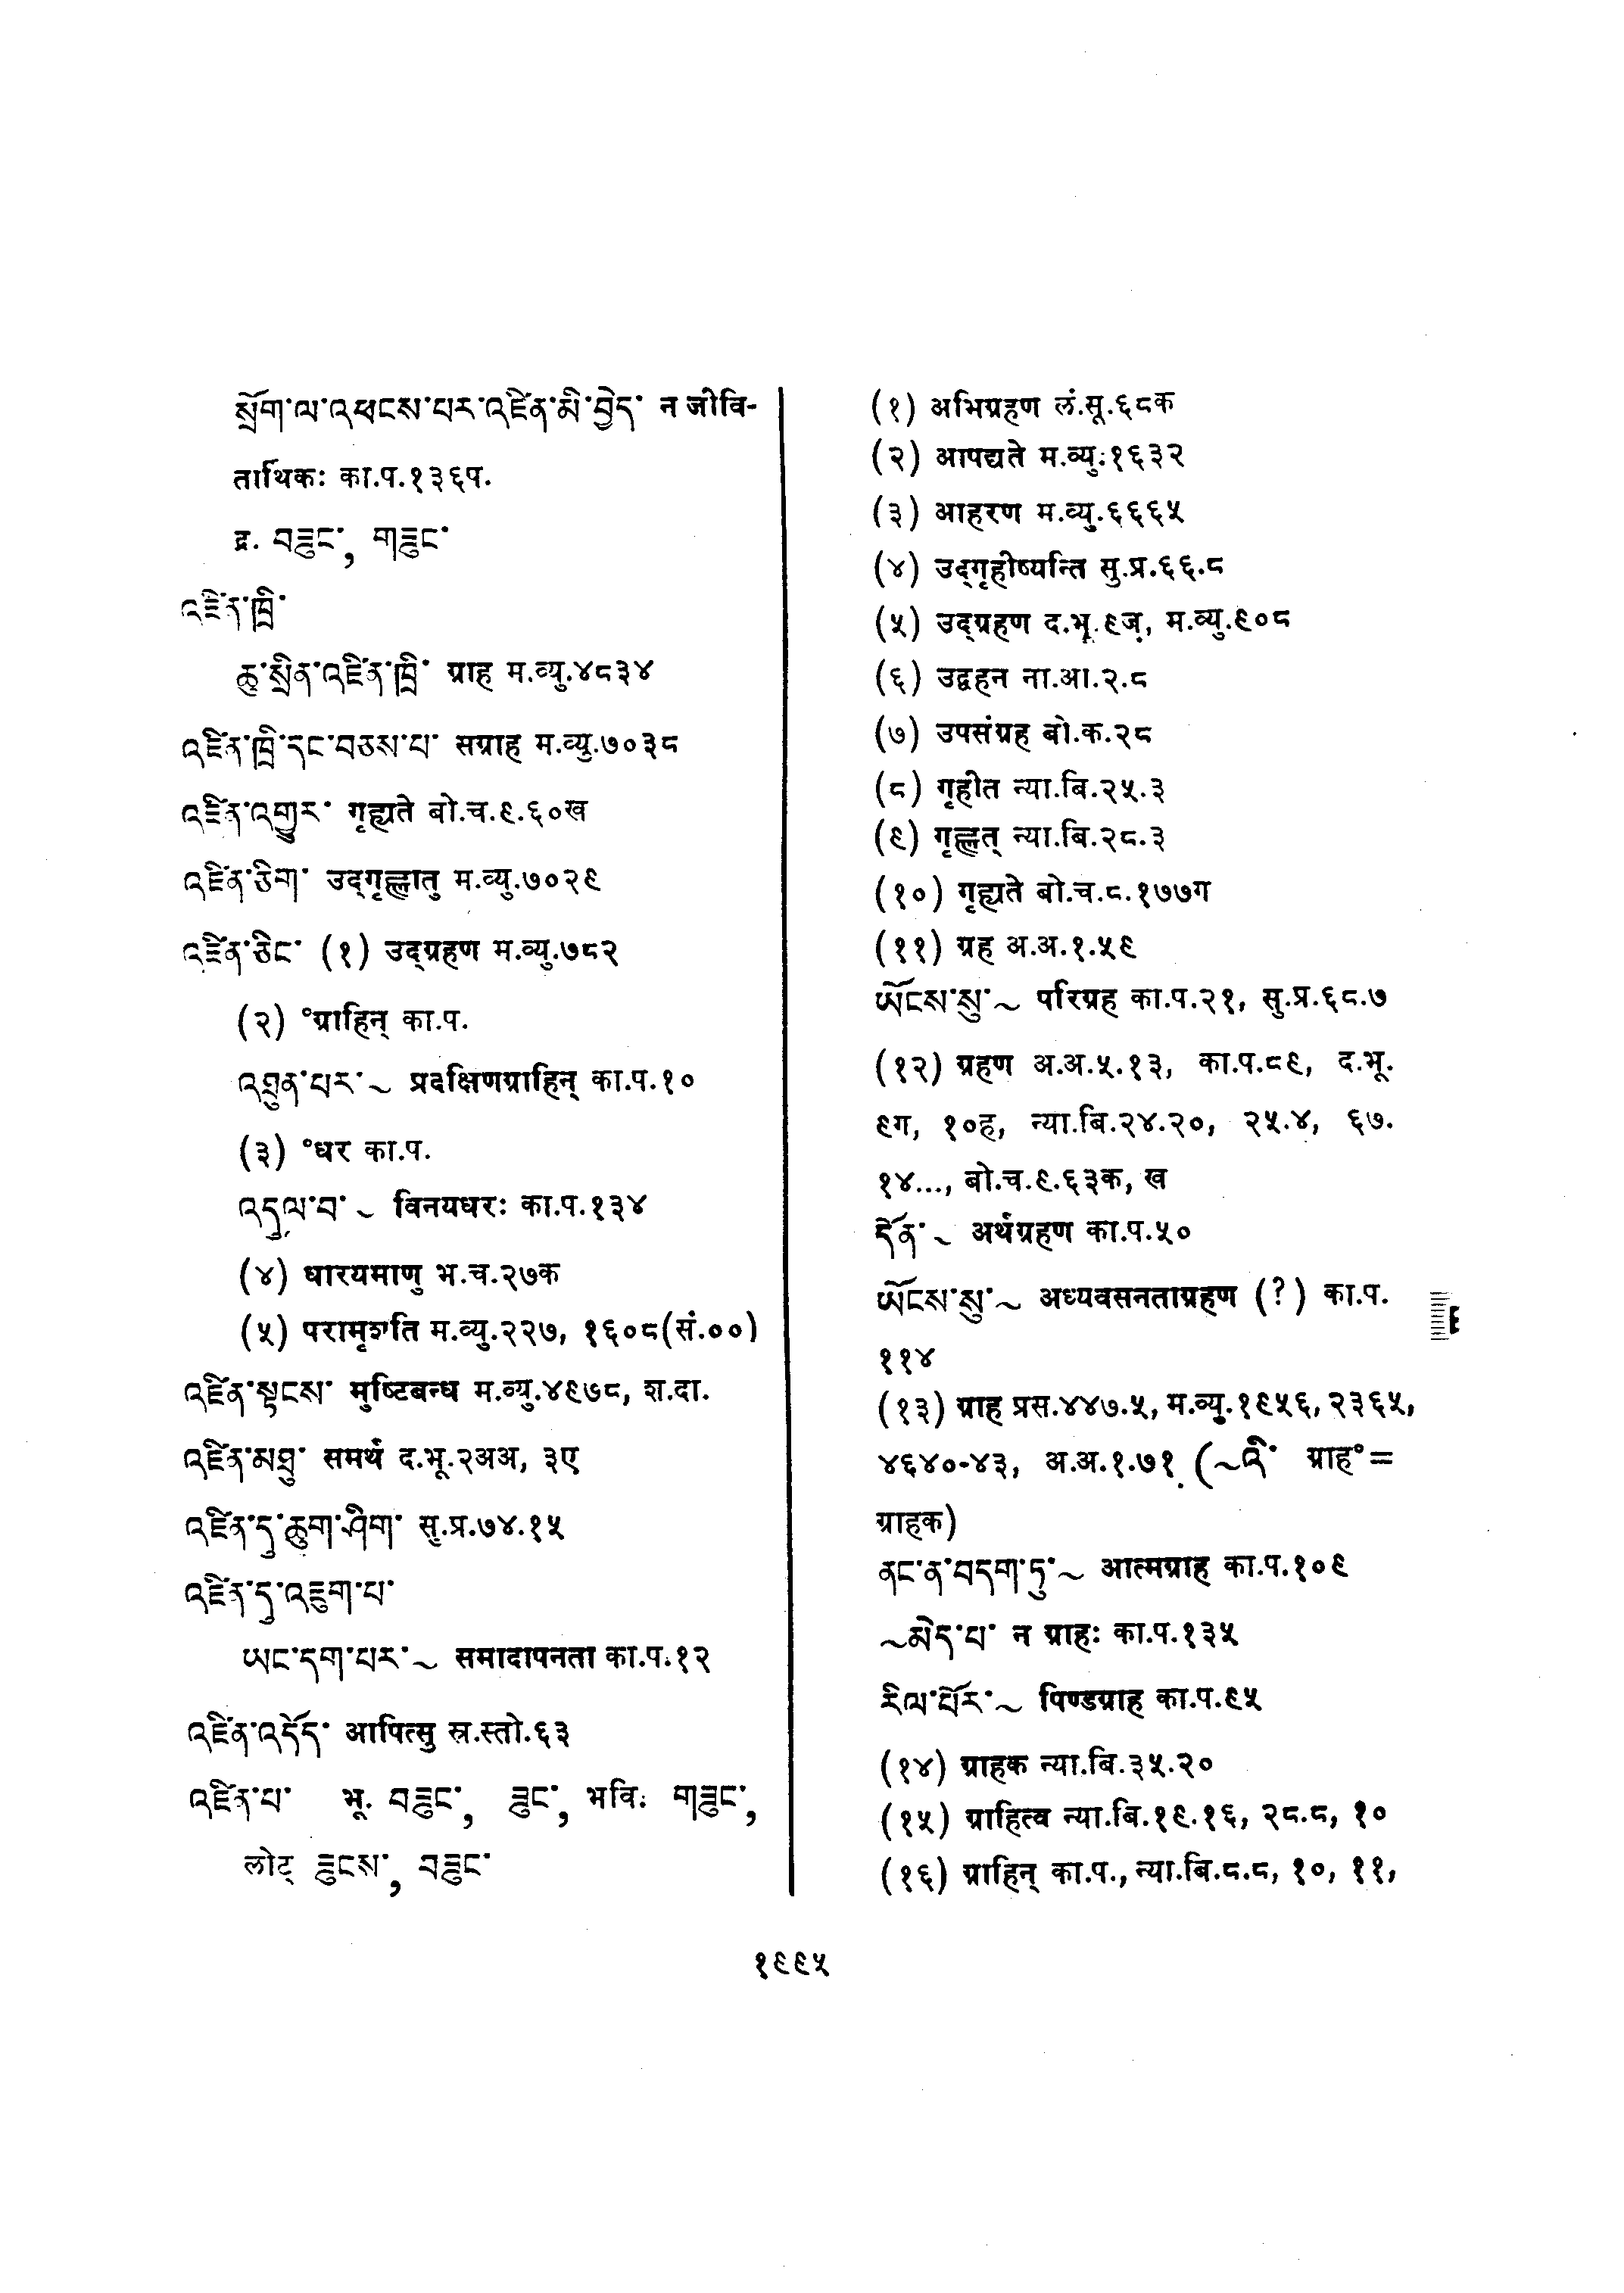 སྲོག་ལ་འཕངས་པར་འཛིན་མི་བྱེད་ न जीवि-
तार्थिकः का.प.१३६प.
द्र. བཟུང་, གཟུང་
འཛིན་ཁྲི་
ཆུ་སྲིན་འཛིན་ཁྲི་ ग्राह म.व्यु.४८३४
འཛིན་ཁྲི་དང་བཅས་པ་ सग्राह म.व्यु.७०३८
འཛིན་འགྱུར་ गृह्यते बो.च.९.६०ख
འཛིན་ཅིག་ उद्गृह्णातु म.व्यु.७०२९
འཛིན་ཅིང་ (१) उद्ग्रहण म.व्यु.७८२
(२) °ग्राहिन् का.प.
འཐུན་པར་~ प्रदक्षिणग्राहिन् का.प.१०
(३) °धर का.प.
འདུལ་བ་~ विनयधरः का.प.१३४
(४) धारयमाणु भ.च.२७क
(५) परामृशति म.व्यु.२२७, १६०८(सं.००)
འཛིན་སྟངས་ मुष्टिबन्ध म.व्यु.४९७८, श.दा.
འཛིན་མཐུ་ समर्थ द.भू.२अअ, ३ए
འཛིན་དུ་ཆུག་ཤིག་ सु.प्र.७४.१५
འཛིན་དུ་འཇུག་པ་
ཡང་དག་པར་~ समादापनता का.प.१२
འཛིན་འདོད་ आपित्सु स्र.स्तो.६३
འཛིན་པ་ भू. བཟུང་, ཟུང་, भवि. གཟུང་,
लोट् ཟུངས་, བཟུང་
(१) अभिग्रहण लं.सू.६८क
(२) आपद्यते म.व्यु.१६३२
(३) आहरण म.व्यु.६६६५
(४) उद्गृहीष्यन्ति सु.प्र.६६.८
(५) उद्ग्रहण द.भू.९ज, म.व्यु.९०८
(६) उद्वहन ना.आ.२.८
(७) उपसंग्रह बो.क.२८
(८) गृहीत न्या.बि.२५.३
(९) गृह्णत् न्या.बि.२८.३
(१०) गृह्यते बो.च.८.१७७ग
(११) ग्रह अ.अ.१.५९
ཡོངས་སུ་~ परिग्रह का.प.२१, सु.प्र.६८.७
(१२) ग्रहण अ.अ.५.१३, का.प.८९, द.भू.
९ग, १०ह, न्या.बि.२४.२०, २५.४, ६७.
१४..., बो.च.९.६३क, ख
དོན་~ अर्थग्रहण का.प.५०
ཡོངས་སུ་~ अध्यवसनताग्रहण (?) का.प.
११४
(१३) ग्राह प्रस.४४७.५, म.व्यु.१९५६, २३६५,
४६४०-४३, अ.अ.१.७१ (~འི་ ग्राह°=
ग्राहक)
ནང་ན་བདག་ཏུ་~ आत्मग्राह का.प.१०९
~མེད་པ་ न ग्राहः का.प.१३५
རིལ་པོར་~ पिण्डग्राह का.प.९५
(१४) ग्राहक न्या.बि.३५.२०
(१५) ग्राहित्व न्या.बि.१९.१६, २८.८, १०
(१६) ग्राहिन् का.प., न्या.बि.८.८, १०, ११,
१९९५